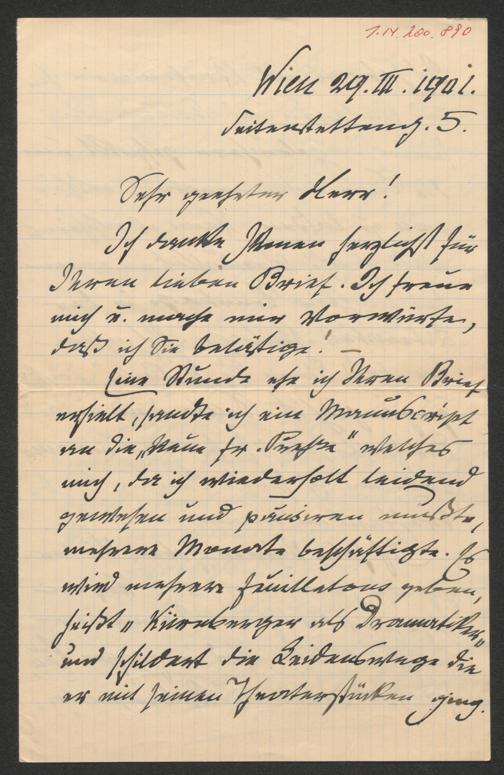 I.N. 200.890
Wien 29. III. 1901.
Seitenstetteng. 5.
Sehr geehrter Herr!
Ich danke Ihnen herzlichst für
Ihren lieben Brief. Ich freue
mich u. mache mir Vorwürfe,
daß ich Sie belästige! –
Eine Stunde ehe ich Ihren Brief
erhielt, sandte ich ein Manuscript
an die „Neue fr. Presse" welches
mich, da ich wiederholt leidend
gewesen und pausiren mußte,
mehrere Monate beschäftigte. Es
wird mehrere Feuilletons geben,
heißt „Kürnberger als Dramatiker"
und schildert die Leidenswege die
er mit seinen Theaterstücken ging.